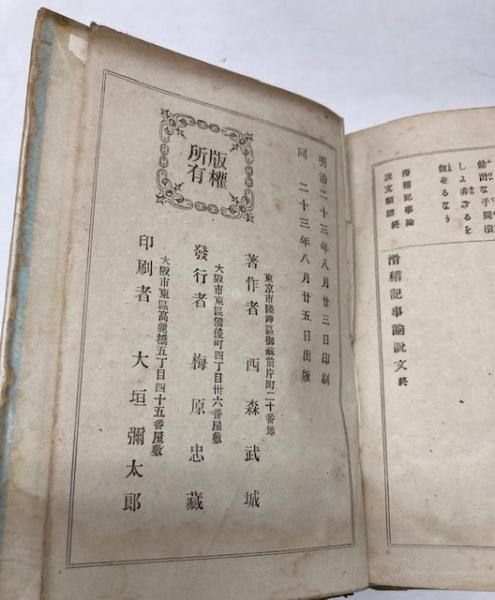 滑稽記事論
説文類語終
滑稽記事論説文終
明治二十三年八月廿三日印刷
同 二十三年八月廿五日出版
版權
所有
東京市淺草區御藏前片町二十番地
著作者 西森武城
大阪市東區備後町四丁目卅六番屋敷
發行者 梅原忠藏
大阪市東區高麗橋五丁目四十五番屋敷
印刷者 大垣彌太郎